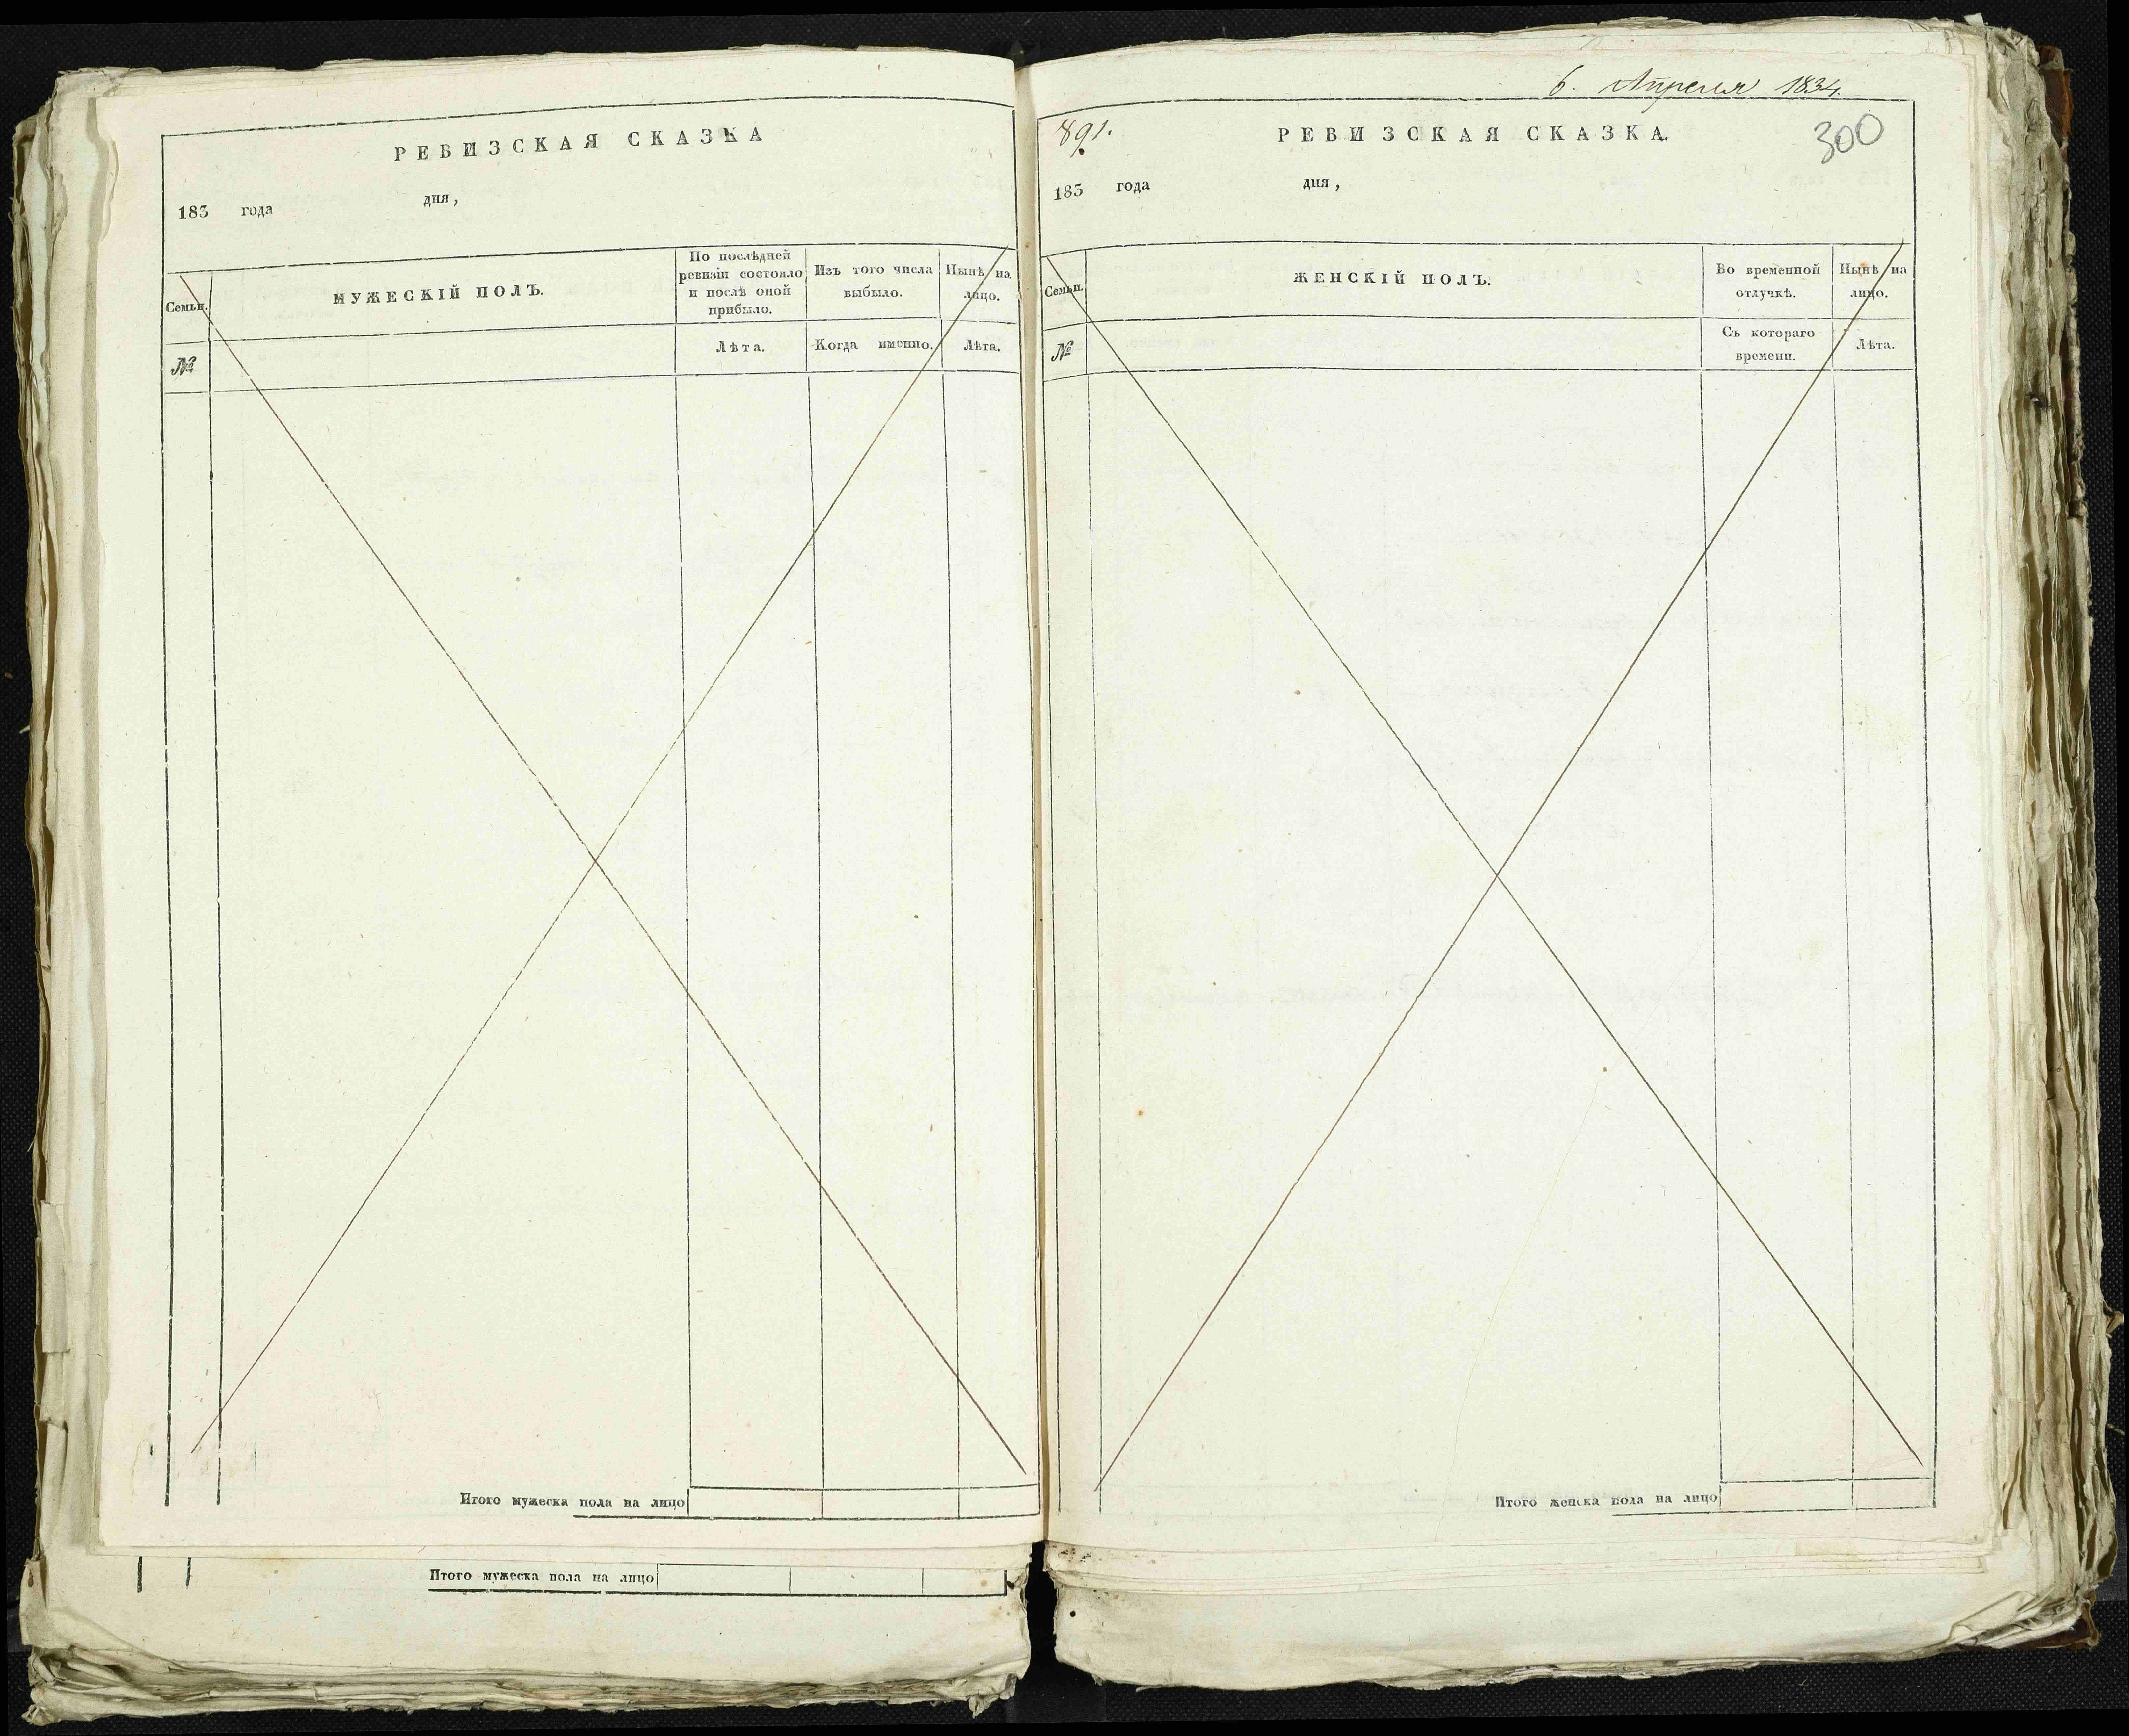 РЕВИЗСКАЯ СКАЗКА
183 года дня,
Семьи.
МУЖЕСКІЙ ПОЛЪ.
По послѣдней
ревизіи состояло
и послѣ оной
прибыло.
Изъ того числа
выбыло.
Нынѣ на
лицо.
№
Лѣта.
Когда именно.
Лѣта.
Итого мужеска пола на лицо
Итого мужеска пола на лицо
6. Апреля 1834.
891.
РЕВИЗСКАЯ СКАЗКА.
300
183 года дня,
Семьи.
ЖЕНСКІЙ ПОЛЪ.
Во временной
отлучкѣ.
Нынѣ на
лицо.
№
Съ котораго
времени.
Лѣта.
Итого женска пола на лицо